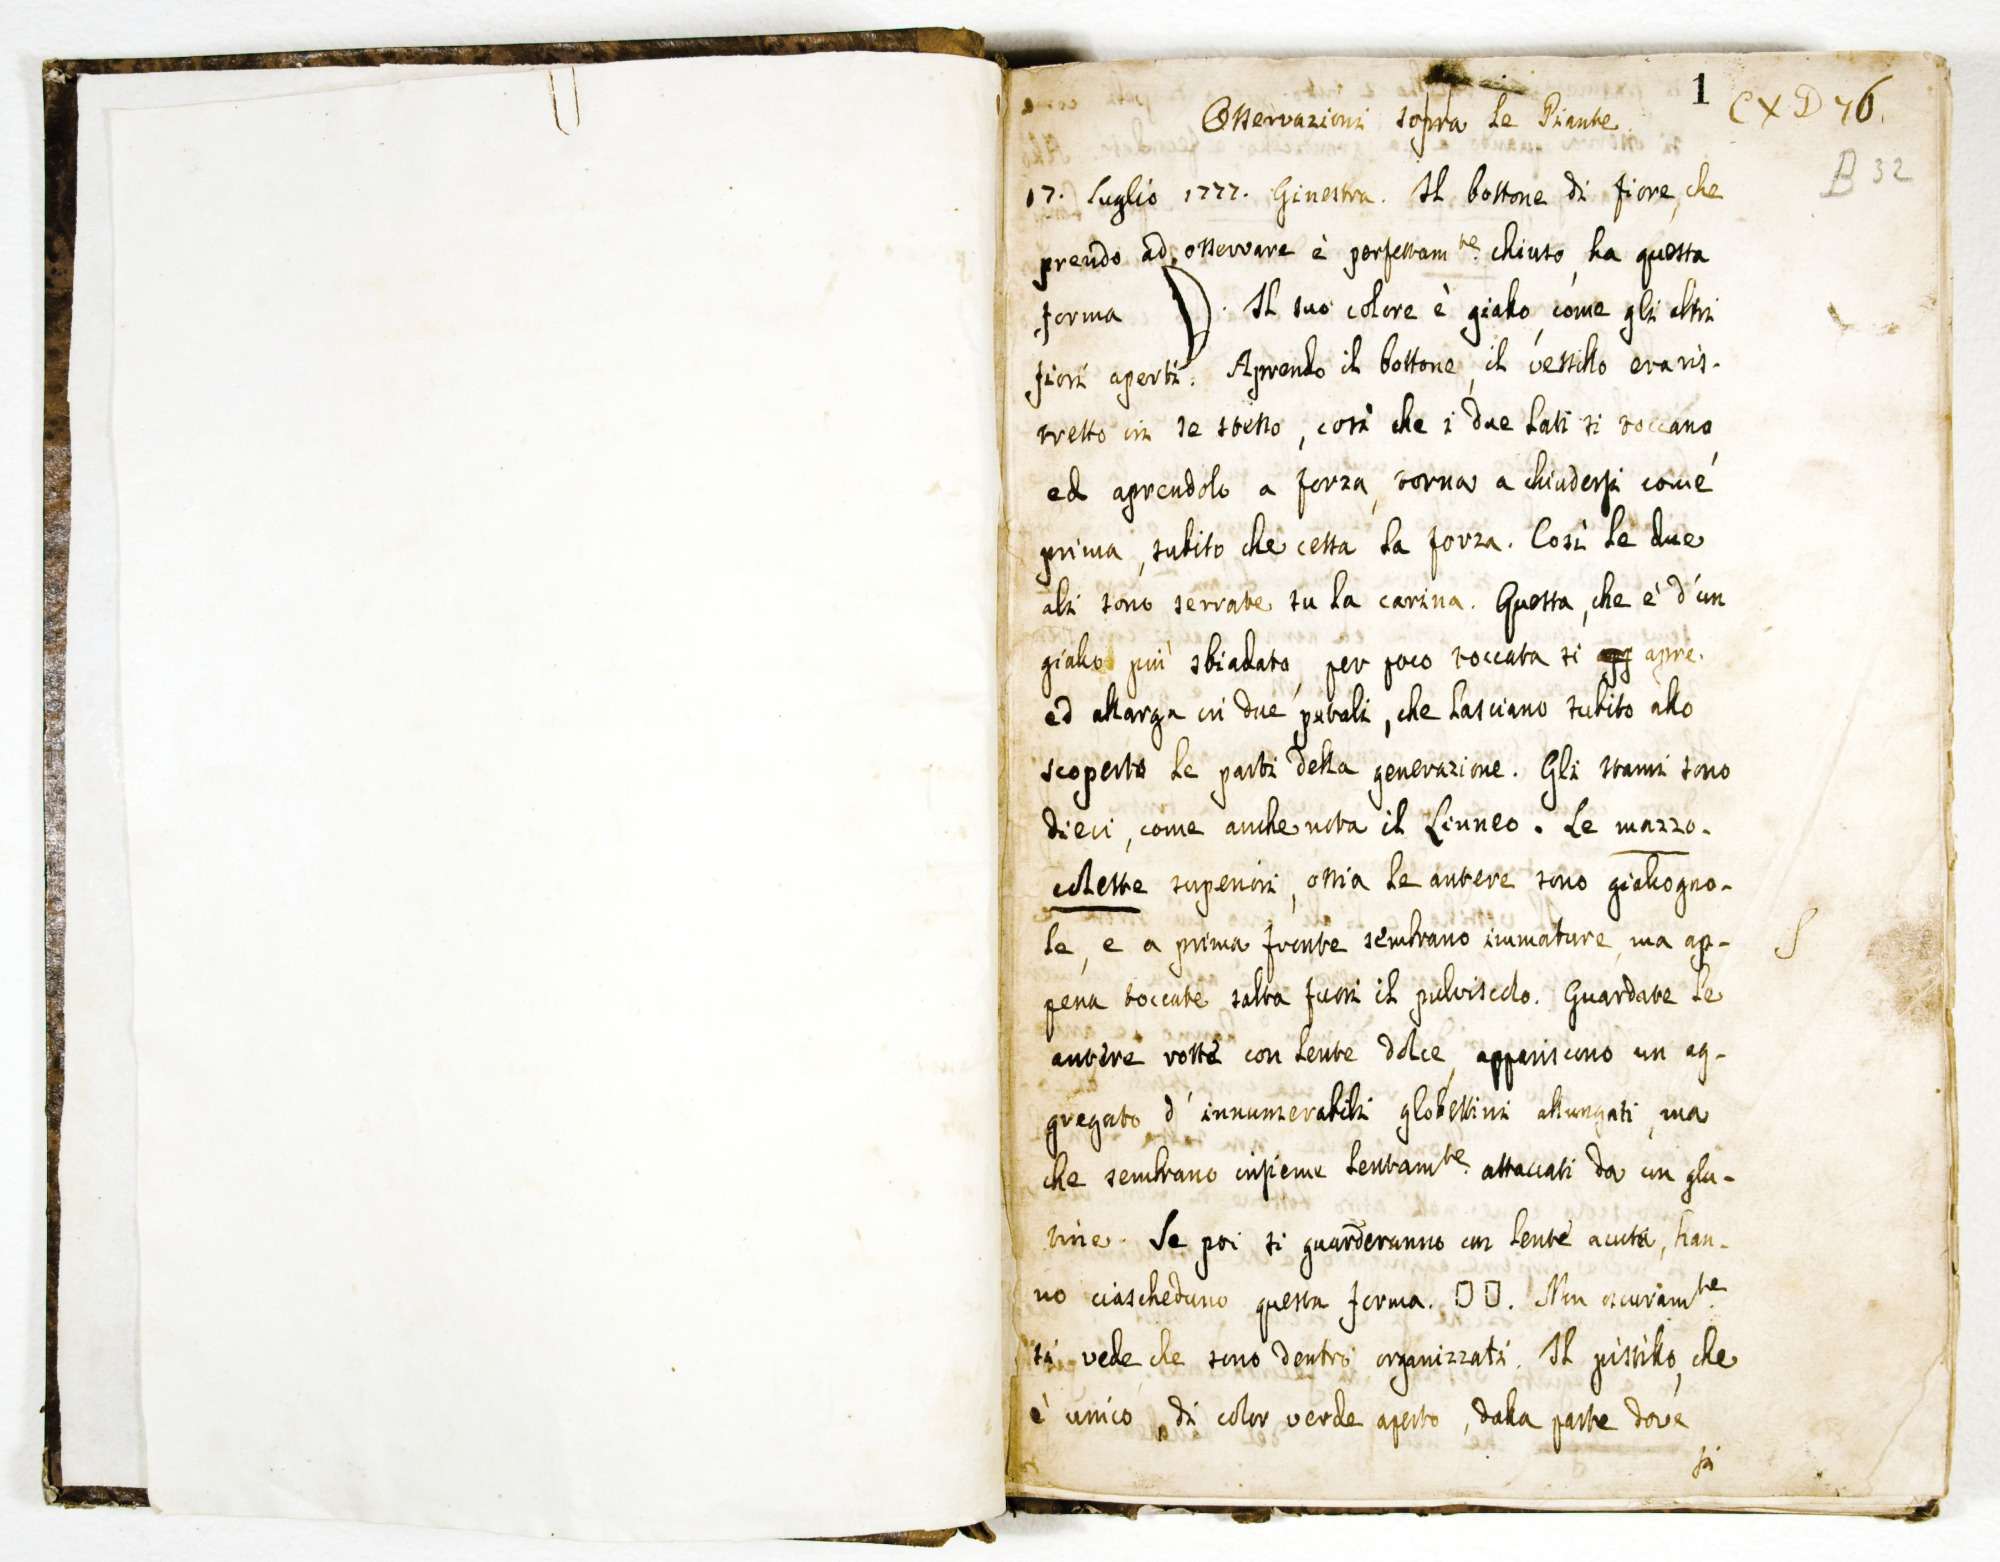 1
CXD 46.
Osservazioni sopra le Piante
B 32
17. Luglio 1777. Ginestra. Il bottone di fiore, che
prendo ad osservare è perfettam.te chiuso, ha questa
forma . Il suo colore è giallo, come gli altri
fiori aperti. Aprendo il bottone, il vessillo era ris-
tretto in se stesso, così che i due lati si toccano
ed aprendolo a forza, torna a chiudersi come
prima, subito che cessa la forza. Così le due
ali sono serrate su la carina. Questa, che è d'un
giallo più sbiadato, per poco toccata si apre.
ed allarga in due petali, che lasciano subito allo
scoperto le parti della generazione. Gli stami sono
dieci, come anche nota il Linneo. Le mazzo-
colette superiori, ossia le antere sono giallogno-
le, e a prima fronte sembrano immature, ma ap-
pena toccate salta fuori il pulviscolo. Guardate le
antere rotte con lente dolce, appariscono un ag-
gregato d'innumerabili globettini allungati, ma
che sembrano insieme lentam.te attaccati da un glu-
tine. Se poi si guarderanno con lente acuta, han-
no ciascheduno questa forma. . Non oscuram.te
si vede che sono dentro organizzati. Il pistillo, che
è unico, di color verde aperto, dalla parte dove
si
S